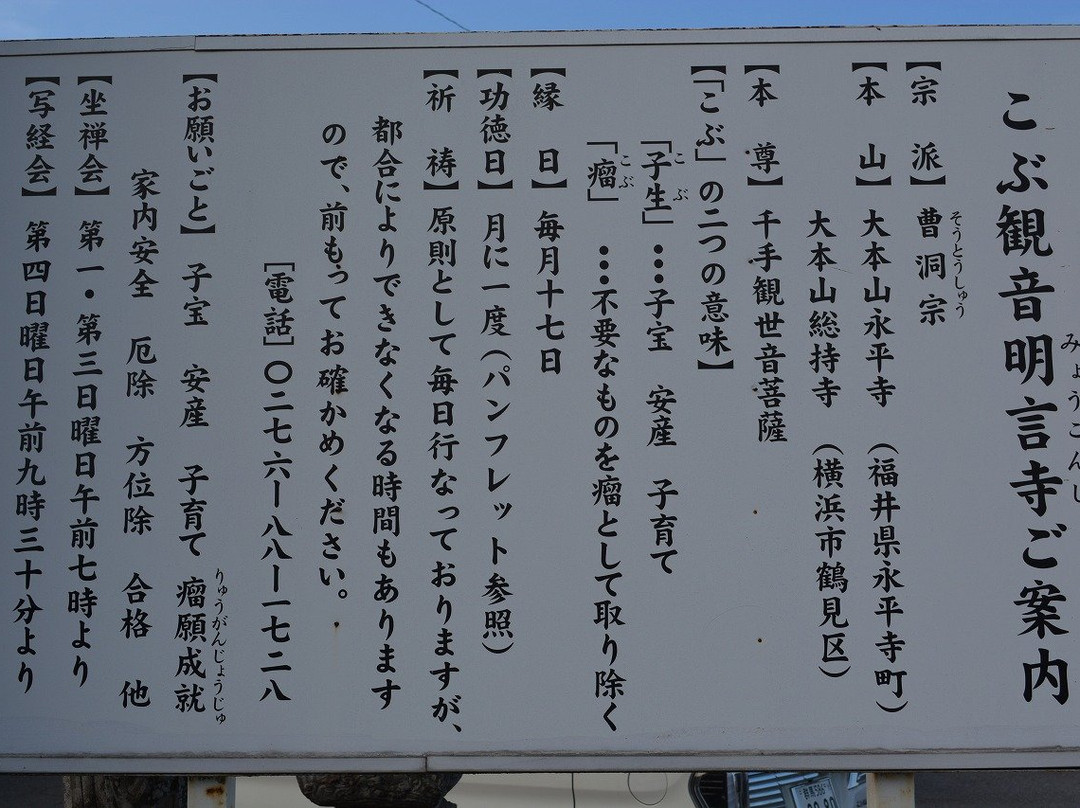 こぶ観音明言寺ご案内
みょうごんじ
【宗　派】曹洞宗
そうとうしゅう
【本　山】大本山永平寺　（福井県永平寺町）
大本山総持寺　（横浜市鶴見区）
【本　尊】千手観世音菩薩
【「こぶ」の二つの意味】
「子生」…子宝　安産　子育て
こぶ
「瘤」　…不要なものを瘤として取り除く
こぶ
【縁　日】毎月十七日
【功徳日】月に一度（パンフレット参照）
【祈　祷】原則として毎日行なっておりますが、
都合によりできなくなる時間もあります
ので、前もってお確かめください。
［電話］〇二七六ー八八ー一七二八
【お願いごと】子宝　安産　子育て　瘤願成就
りゅうがんじょうじゅ
家内安全　厄除　方位除　合格　他
【坐禅会】第一・第三日曜日午前七時より
【写経会】第四日曜日午前九時三十分より